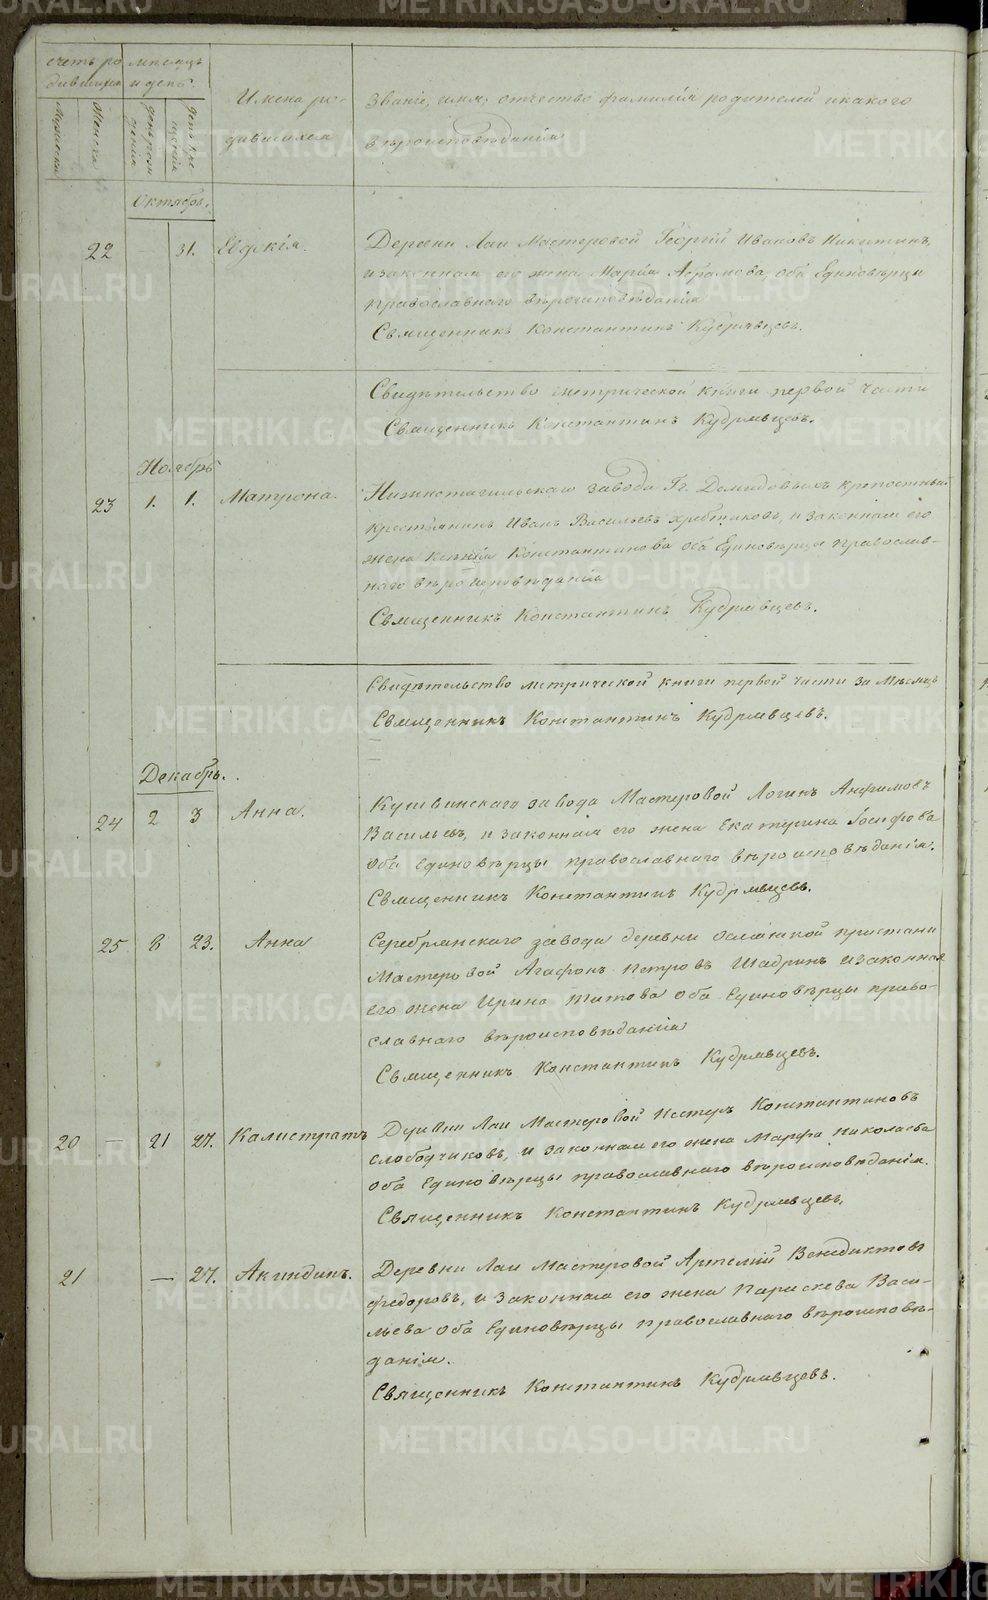 счетъ ро мѣсяцъ
дившихся и день.
Имена ро-
дившихся
Званіе, имя, отчество фамилія родителей и какого
вѣроисповѣданія
Мужеска
Женска
день рож
денія
день кре
щенія
Октябрь.
22 31. Евдокія.
Деревни Лаи Мастеровой Георгій Ивановъ Никитинъ,
и законная его жена Марія Абрамова, оба Единовѣрцы
православнаго вѣроисповѣданія
Священникъ Константинъ Кудрявцевъ.
Свидѣтельство метрической книги первой части
Священникъ Константинъ Кудрявцевъ.
Ноябрь
23 1. 1. Матрона.
Нижнетагильскаго завода Гг. Демидовыхъ крепостный
крестьянинъ Иванъ Васильевъ Хребтиковъ, и законная его
жена Ксенія Константинова оба Единовѣрцы православ-
наго вѣроисповѣданія
Священникъ Константинъ Кудрявцевъ.
Свидѣтельство метрической книги первой части за Мѣсяцъ
Священникъ Константинъ Кудрявцевъ.
Декабрь.
24 2 3 Анна.
Кушвинскаго завода Мастеровой Логинъ Анфимовъ
Васильевъ, и законная его жена Екатерина Іосифова
Оба Единовѣрцы православнаго вѣроисповѣданія.
Священникъ Константинъ Кудрявцевъ.
25 8 23. Анна
Серебрянскаго завода деревни Ослянской пристани
Мастеровой Агафонъ Петровъ Шадринъ и законная
его жена Ирина Титова оба Единовѣрцы право-
славнаго вѣроисповѣданія
Священникъ Константинъ Кудрявцевъ.
20 — 21 27. Калистратъ
Деревни Лаи Мастеровой Нестеръ Константиновъ
Слободчиковъ, и законная его жена Марфа Николаева
Оба Единовѣрцы православнаго вѣроисповѣданія.
Священникъ Константинъ Кудрявцевъ.
21 — 27. Акиндинъ.
Деревни Лаи Мастеровой Артемій Венедиктовъ
Федоровъ, и законная его жена Параскева Васи-
льева Оба Единовѣрцы православнаго вѣроисповѣ-
данія.
Священникъ Константинъ Кудрявцевъ.
METRIKI.GASO-URAL.RU